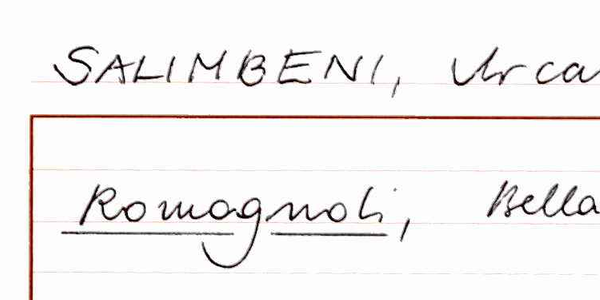 SALIMBENI, Urca
Romagnoli, Bella